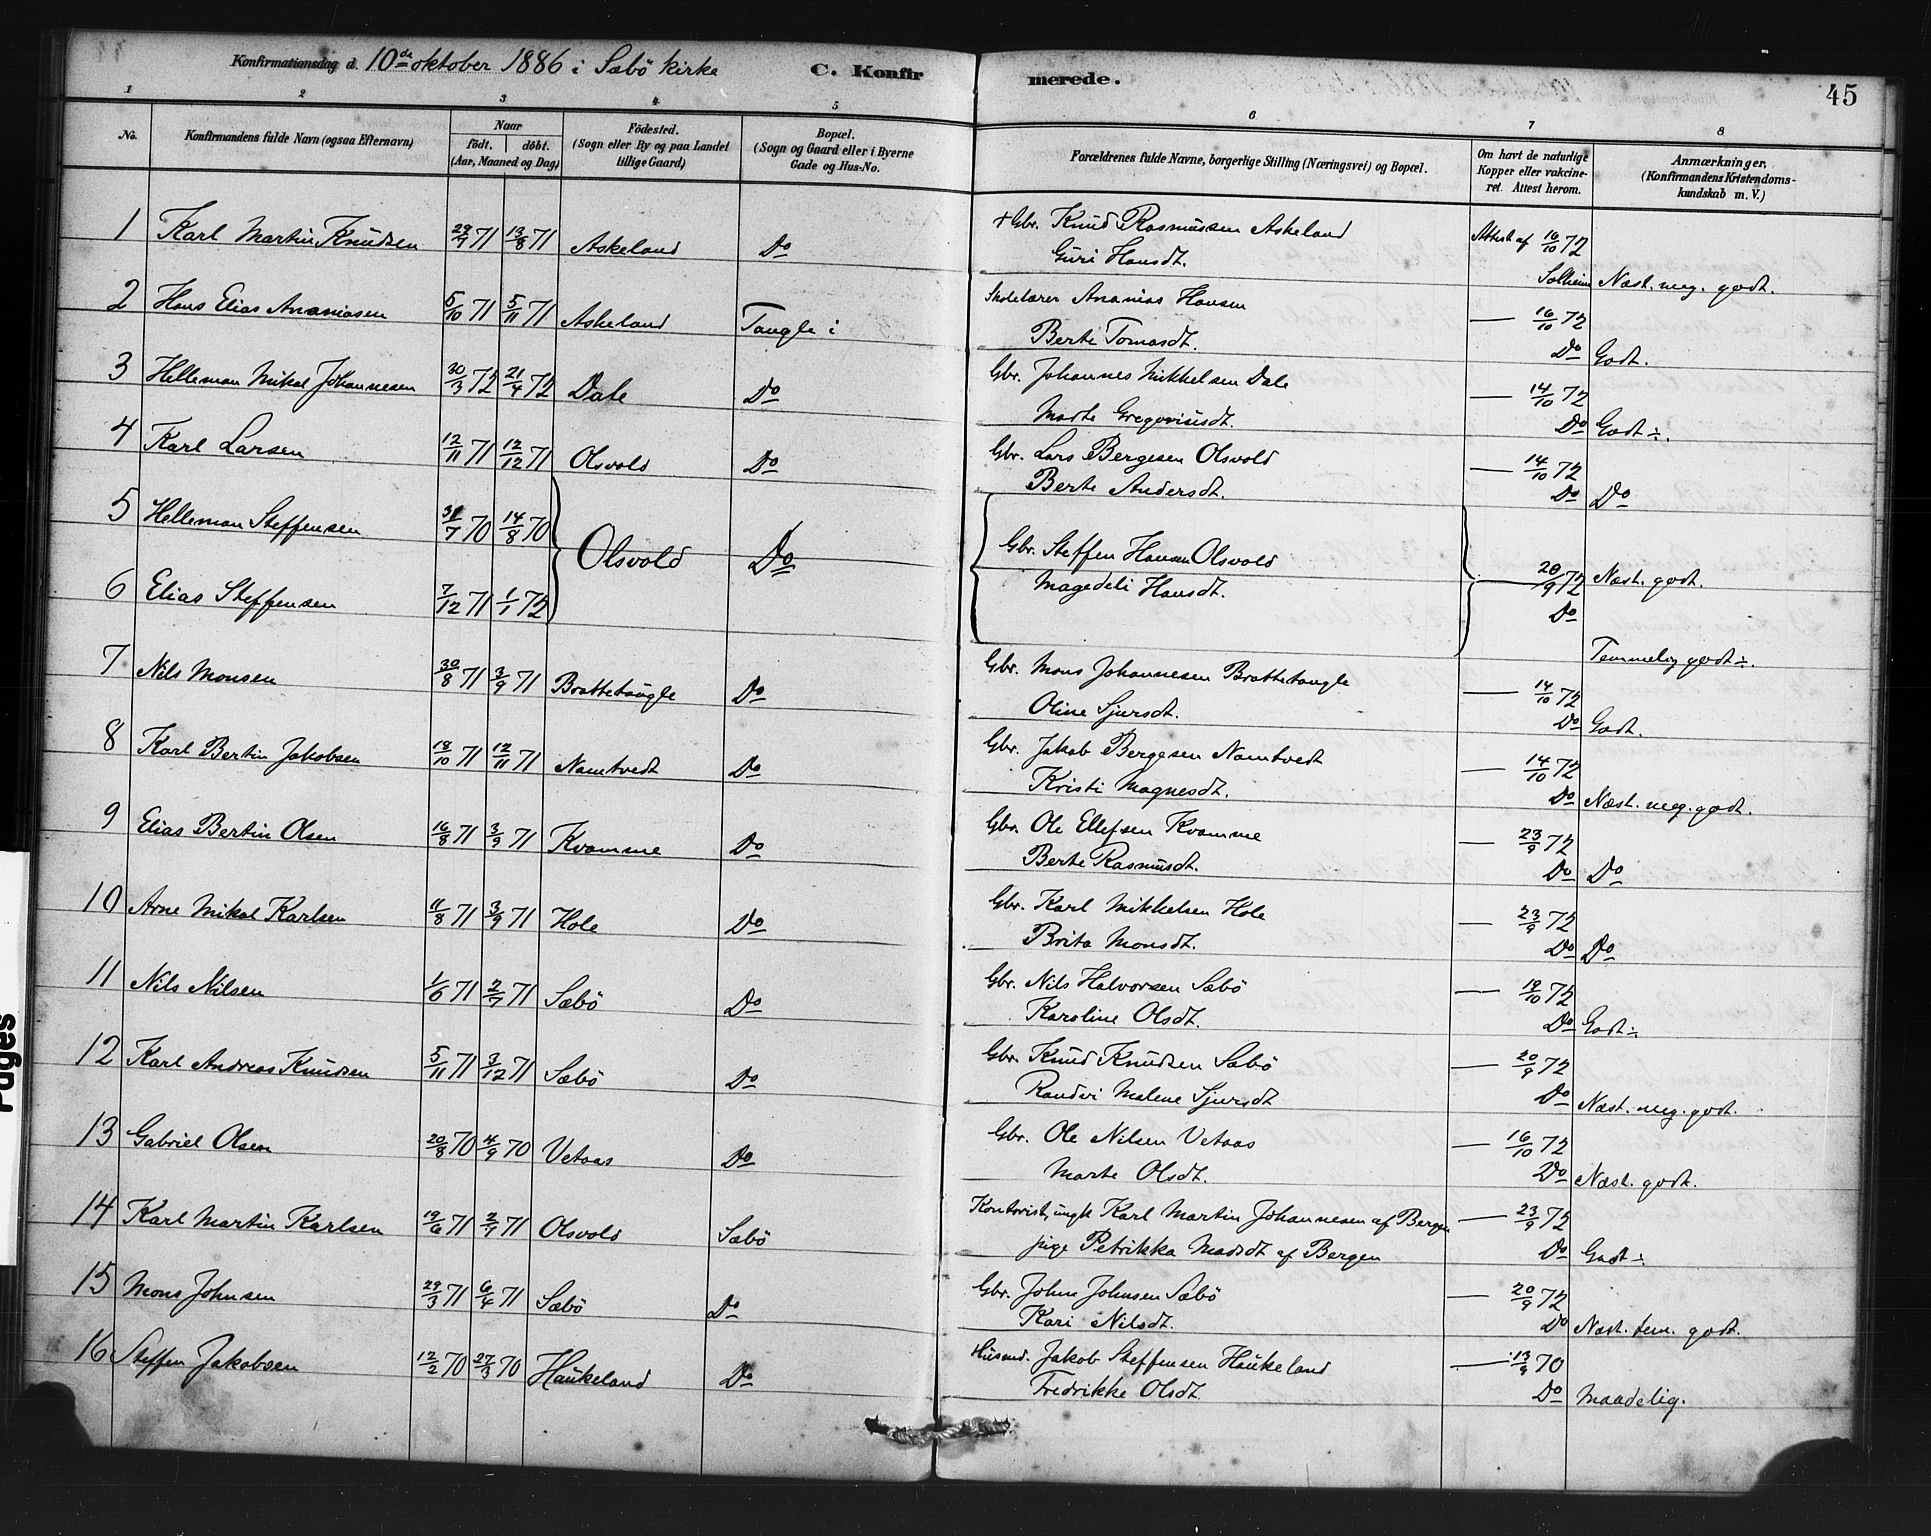 Konfirmationsdag d. 10de oktober 1886 i Sæbö kirke C. Konfirmerede. 45
1 2 3 4 5 6 7 8
No. Konfirmandens fulde Navn (ogsaa Efternavn) Naar födt. döbt. (Aar, Maaned og Dag) Födested. (Sogn eller By og paa Landet tillige Gaard) Bopæl. (Sogn og Gaard eller i Byerne Gade og Hus-No. Forældrenes fulde Navne, borgerlige Stilling (Næringsvei) og Bopæl. Om havt de naturlige Kopper eller vakcineret. Attest herom. Anmærkninger. (Konfirmandens Kristendomskundskab m. V.)
1 Karl Martin Knudsen 29/7 71 13/8 71 Askeland Do + Gbr. Knud Rasmussen Askeland Attest af 16/10 72
Guri Hansdt. Solheim Næst. meg. godt.
2 Hans Elias Ananiasen 5/10 71 5/11 71 Askeland Tangle i Skolelærer Ananias Hansen — 16/10 72
Berte Tomasdt. Do Godt.
3 Helleman Mikal Johannesen 30/3 72 21/4 72 Dale Do Gbr. Johannes Mikkelsen Dale — 14/10 72
Marte Gregoriusdt. Do Godt ÷.
4 Karl Larsen 12/11 71 12/12 71 Olsvold Do Gbr. Lars Bergesen Olsvold — 14/10 72
Berte Andersdt. Do Do
5 Helleman Steffensen 31/7 70 14/8 70 Olsvold Do Gbr. Steffen Hansen Olsvold — 20/9 72 Næst. godt.
6 Elias Steffensen 7/12 71 1/1 72 Magedeli Hansdt. Do
Temmelig godt ÷.
7 Nils Monsen 30/8 71 3/9 71 Brattetangle Do Gbr. Mons Johannesen Brattetangle — 14/10 72
Oline Sjursdt. Do Godt.
8 Karl Bertin Jakobsen 18/10 71 12/11 71 Namtvedt Do Gbr. Jakob Bergesen Namtvedt — 14/10 72
Kristi Magnesdt. Do Næst. meg. godt.
9 Elias Bertin Olsen 16/8 71 3/9 71 Kvamme Do Gbr. Ole Ellefsen Kvamme — 23/9 72
Berte Rasmusdt. Do Do
10 Arne Mikal Karlsen 11/8 71 3/9 71 Hole Do Gbr. Karl Mikkelsen Hole — 23/9 72
Brita Monsdt. Do Do
11 Nils Nilsen 1/6 71 2/7 71 Sæbö Do Gbr. Nils Halvorsen Sæbö — 19/10 72
Karoline Olsdt. Do Godt ÷
12 Karl Andreas Knudsen 5/11 71 3/12 71 Sæbö Do Gbr. Knud Knudsen Sæbö — 20/9 72
Randvi Malene Sjursdt Do Næst. meg. godt.
13 Gabriel Olsen 20/8 70 4/9 70 Vetaas Do Gbr. Ole Nilsen Vetaas — 16/10 72
Marte Olsdt. Do Næst. godt.
14 Karl Martin Karlsen 19/6 71 2/7 71 Olsvold Sæbö Kontorist, ungk Karl Martin Johannesen af Bergen — 23/9 72
pige Petrikka Madsdt af Bergen Do Godt ÷
15 Mons Johnsen 29/3 71 6/4 71 Sæbö Do Gbr. John Johnsen Sæbö — 20/9 72
Kari Nilsdt. Do Næst. tem. godt.
16 Steffen Jakobsen 12/2 70 27/3 70 Haukeland Do Husmd. Jakob Steffensen Haukeland — 13/9 70
Fredrikke Olsdt. Do Maadelig.
Pages